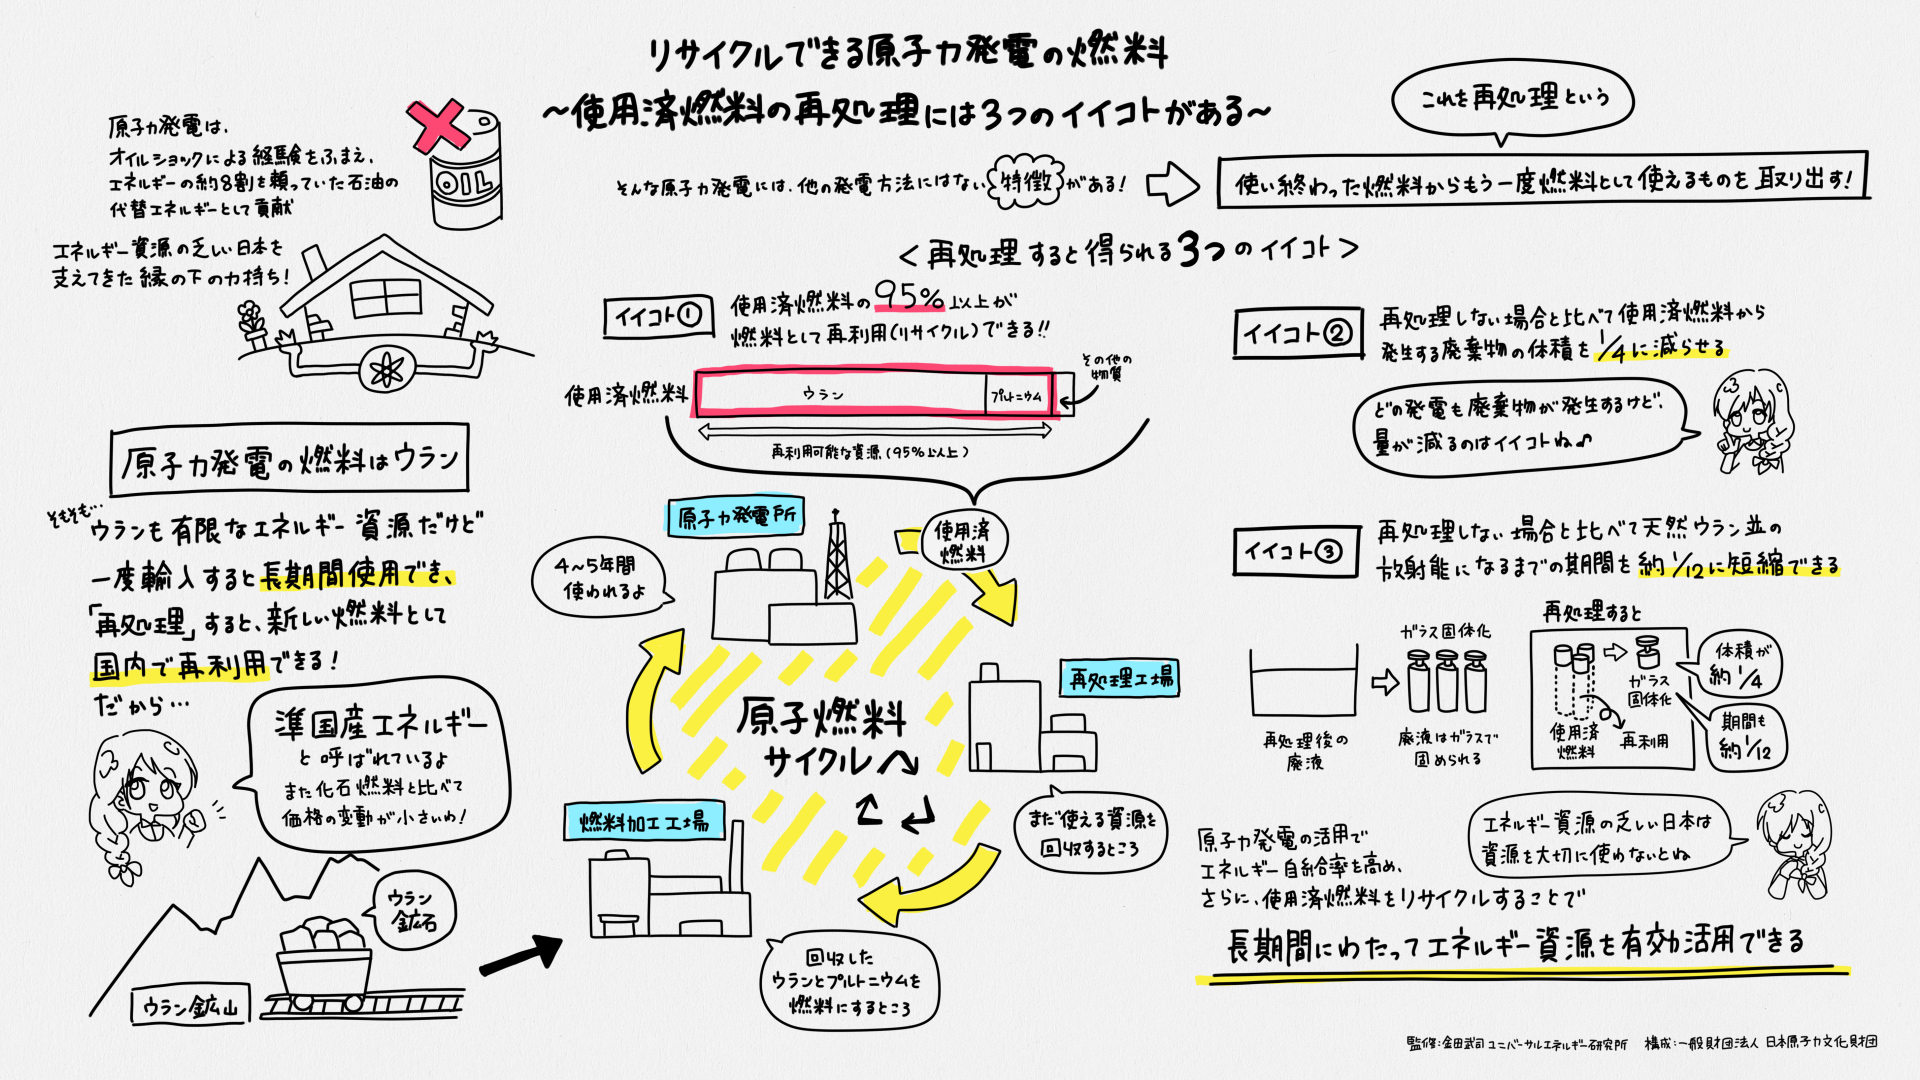 リサイクルできる原子力発電の燃料
～使用済燃料の再処理には3つのイイコトがある～
原子力発電は、
オイルショックによる経験をふまえ、
エネルギーの約8割を頼っていた石油の
代替エネルギーとして貢献
OIL
エネルギー資源の乏しい日本を
支えてきた縁の下の力持ち!
原子力発電の燃料はウラン
そもそも…
ウランも有限なエネルギー資源だけど
一度輸入すると長期間使用でき、
「再処理」すると、新しい燃料として
国内で再利用できる!
だから…
準国産エネルギー
と呼ばれているよ
また化石燃料と比べて
価格の変動が小さいわ!
ウラン
鉱石
ウラン鉱山
そんな原子力発電には、他の発電方法にはない特徴がある!
これを再処理という
使い終わった燃料からもう一度燃料として使えるものを取り出す!
<再処理すると得られる3つのイイコト>
イイコト①
使用済燃料の95%以上が
燃料として再利用(リサイクル)できる!!
使用済燃料
ウラン
プルトニウム
その他の
物質
再利用可能な資源(95%以上)
原子力発電所
使用済
燃料
4～5年間
使われるよ
再処理工場
原子燃料
サイクル
まだ使える資源を
回収するところ
燃料加工工場
回収した
ウランとプルトニウムを
燃料にするところ
イイコト②
再処理しない場合と比べて使用済燃料から
発生する廃棄物の体積を1/4に減らせる
どの発電も廃棄物が発生するけど、
量が減るのはイイコトね♪
イイコト③
再処理しない場合と比べて天然ウラン並の
放射能になるまでの期間を約1/12に短縮できる
再処理後の
廃液
ガラス固体化
廃液はガラスで
固められる
再処理すると
使用済
燃料
ガラス
固体化
再利用
体積が
約1/4
期間も
約1/12
原子力発電の活用で
エネルギー自給率を高め、
さらに、使用済燃料をリサイクルすることで
エネルギー資源の乏しい日本は
資源を大切に使わないとね
長期間にわたってエネルギー資源を有効活用できる
監修:金田武司 ユニバーサルエネルギー研究所 構成:一般財団法人 日本原子力文化財団